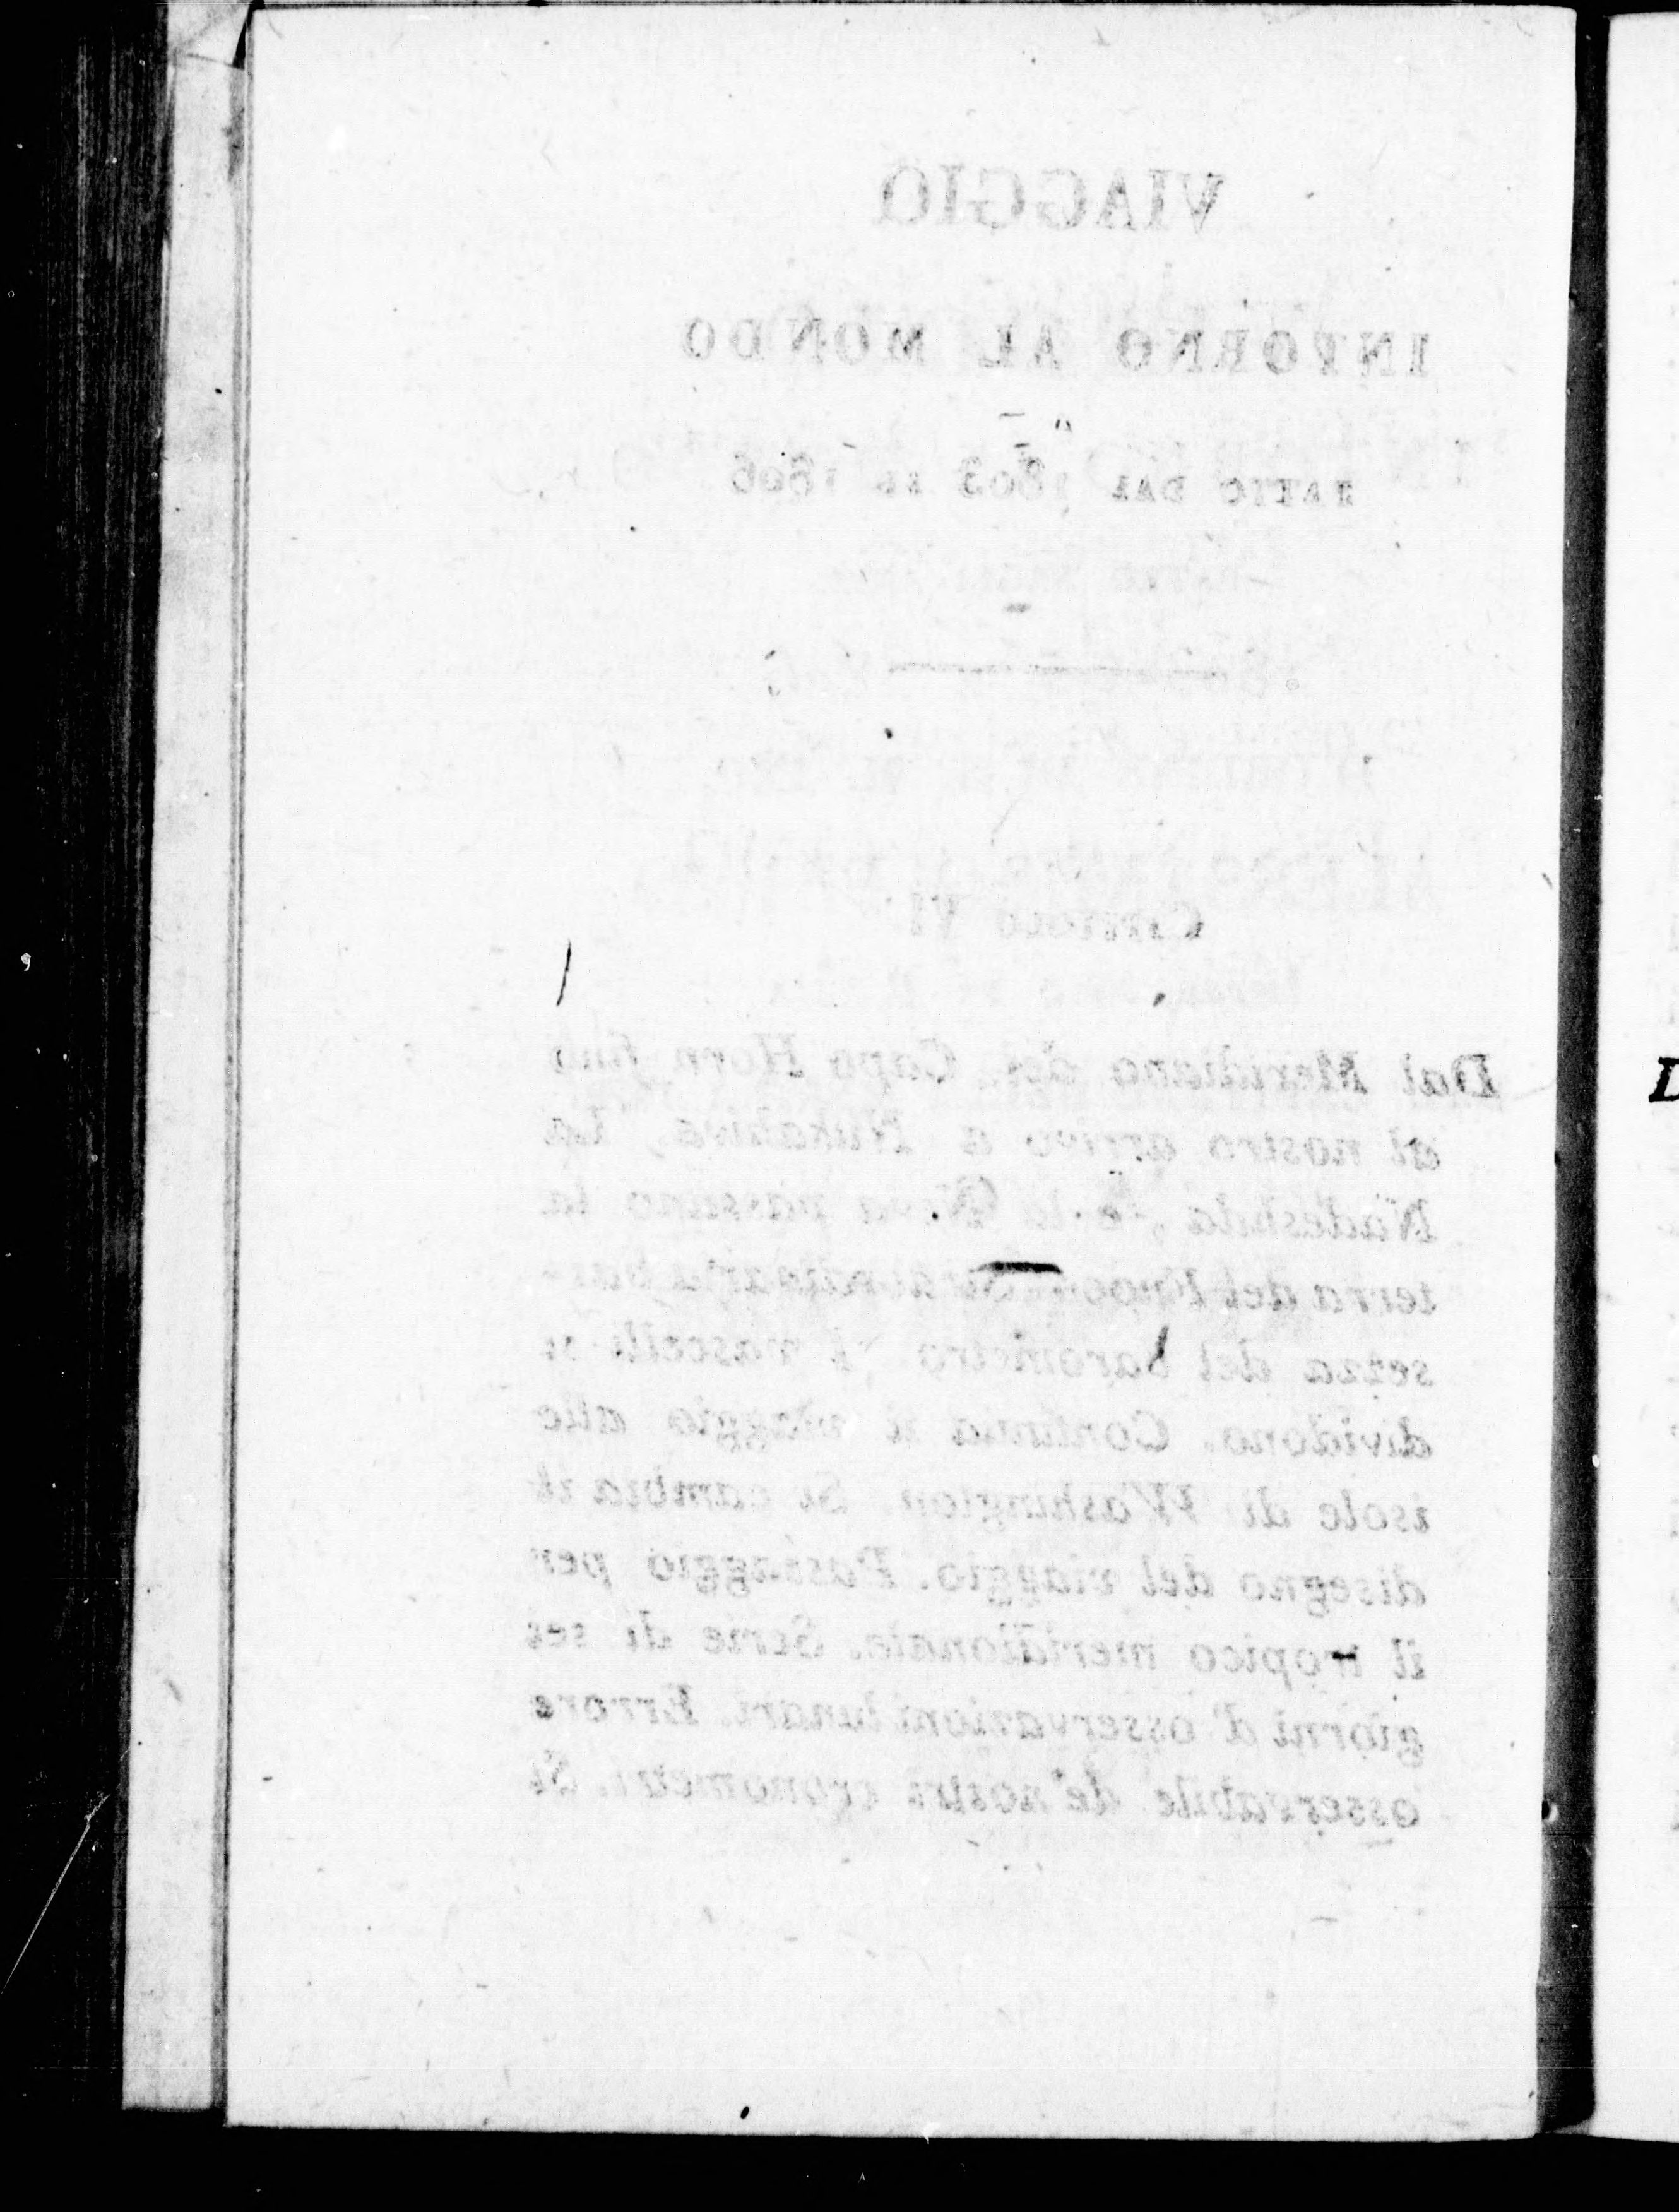 VIAGGIO
INTORNO AL MONDO
FATTO DAL 1803 AL 1806
CAPITOLO VI
Dal Meridiano del Capo Horn fino
al nostro arrivo a Nukahiva. La
Nadeshda, e la Neva passano la
terra del
sezza del barometro I vascelli si
dividono. Continua il viaggio alle
isole di Washington. Si cambia il
disegno del viaggio. Passaggio per
il tropico meridionale. Serie di sei
giorni d'osservazioni lunari. Errore
osservabile de' nostri cronometri. Si